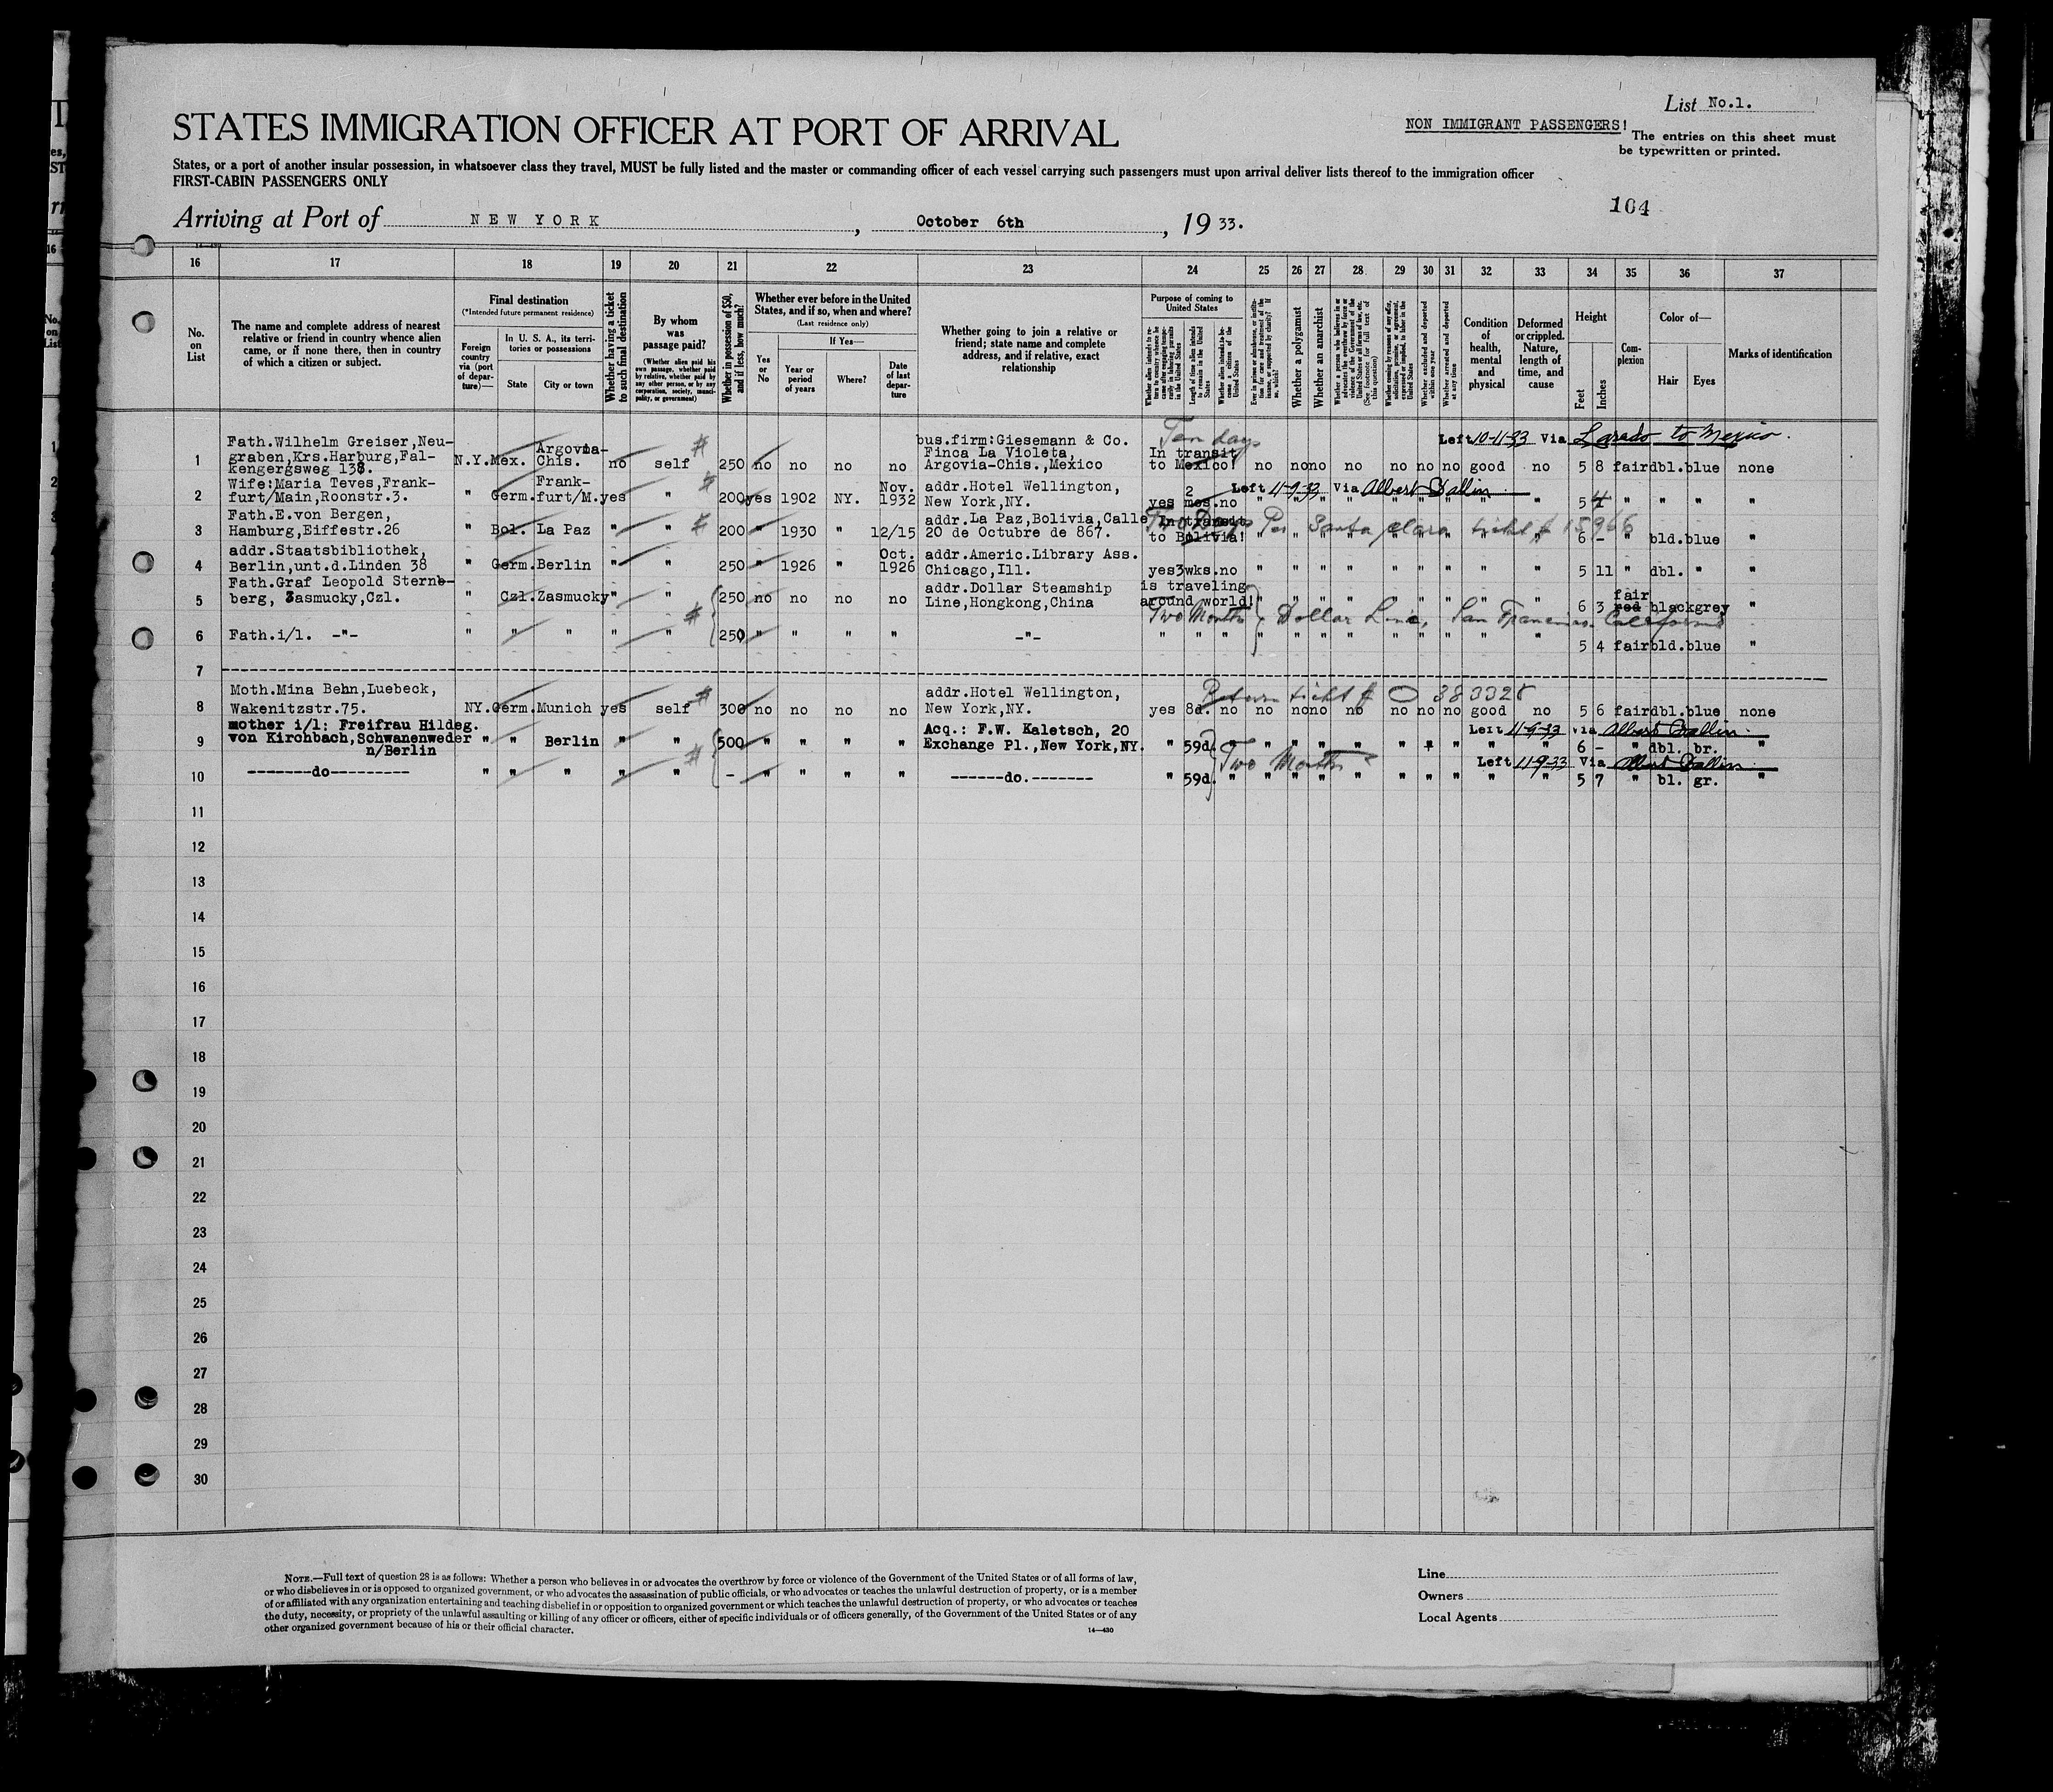 List No.1.
NON IMMIGRANT PASSENGERS!
The entries on this sheet must
be typewritten or printed.
STATES IMMIGRATION OFFICER AT PORT OF ARRIVAL
States, or a port of another insular possession, in whatsoever class they travel, MUST be fully listed and the master or commanding officer of each vessel carrying such passengers must upon arrival deliver lists thereof to the immigration officer
FIRST-CABIN PASSENGERS ONLY
104
Arriving at Port of NEW YORK, October 6th, 1933.
16 17 18 19 20 21 22 23 24 25 26 27 28 29 30 31 32 33 34 35 36 37
No. on List
The name and complete address of nearest relative or friend in country whence alien came, or if none there, then in country of which a citizen or subject.
Final destination
(*Intended future permanent residence)
Foreign country via (port of departure)—
In U. S. A., its territories or possessions
State
City or town
Whether having a ticket to such final destination
By whom was passage paid?
(Whether alien paid his own passage, whether paid by relative, whether paid by any other person, or by any corporation, society, municipality, or government)
Whether in possession of $50, and if less, how much?
Whether ever before in the United States, and if so, when and where?
(Last residence only)
Yes or No
If Yes—
Year or period of years
Where?
Date of last departure
Whether going to join a relative or friend; state name and complete address, and if relative, exact relationship
Purpose of coming to United States
Length of time alien intends to remain in the United States
Whether a polygamist
Whether an anarchist
Whether excluded and deported within one year
Whether arrested and deported at any time
Condition of health, mental and physical
Deformed or crippled. Nature, length of time, and cause
Height
Feet
Inches
Complexion
Color of—
Hair
Eyes
Marks of identification
Ten days
Left 10-11-33 Via Laredo to Mexico.
1 Fath.Wilhelm Greiser,Neugraben,Krs.Harburg,Falkengergsweg 138. N.Y. Mex. Argovia-Chis. no self 250 no no no no bus.firm:Giesemann & Co. Finca La Violeta, Argovia-Chis.,Mexico In transit to Mexico! no no no no no no no good no 5 8 fair dbl. blue none
Left 11-9-33 Via Albert Ballin
2 Wife:Maria Teves,Frankfurt/Main,Roonstr.3. " Germ. Frankfurt/M. yes " 200 yes 1902 NY. Nov. 1932 addr.Hotel Wellington, New York,NY. yes 2 mos. no " " " " " " " " " 5 4 " " " "
3 Fath.E.von Bergen, Hamburg,Eiffestr.26 " Bol. La Paz " " 200 " 1930 " 12/15 addr.La Paz,Bolivia,Calle 20 de Octubre de 867. In transit to Bolivia! " " " " " " " " " 6 - " bld. blue "
Per Santa Clara ticket # 15966
4 addr.Staatsbibliothek, Berlin,unt.d.Linden 38 " Germ. Berlin " " 250 " 1926 " Oct. 1926 addr.Americ.Library Ass. Chicago,Ill. yes 3wks. no " " " " " " " " " 5 11 " dbl. " "
5 Fath.Graf Leopold Sternberg, Zasmucky,Czl. " Czl. Zasmucky " " 250 no no no no addr.Dollar Steamship Line,Hongkong,China is traveling around world! " " " " " " " " " 6 3 fair red black grey "
Two Months Dollar Line, San Francisco California
6 Fath.i/l. -"- " " " " " 250 " " " " -"- " " " " " " " " " " " " 5 4 fair bld. blue "
7
Return ticket # O 383328
8 Moth.Mina Behn,Luebeck, Wakenitzstr.75. NY. Germ. Munich yes self 300 no no no no addr.Hotel Wellington, New York,NY. yes 8d. no no no no no no no no good no 5 6 fair dbl. blue none
Left 11-9-33 via Albert Ballin
9 mother i/l: Freifrau Hildeg. von Kirchbach,Schwanenweder n/Berlin " " Berlin " " 500 " " " " Acq.: F.W. Kaletsch, 20 Exchange Pl.,New York,NY. " 59d. " " " " " " " " " " 6 - " dbl. br. "
Two Months
Left 11-9-33 Via Albert Ballin
10 --------do---------- " " " " " - " " " " -------do.-------- " 59d. " " " " " " " " " " 5 7 " bl. gr. "
11
12
13
14
15
16
17
18
19
20
21
22
23
24
25
26
27
28
29
30
NOTE.—Full text of question 28 is as follows: Whether a person who believes in or advocates the overthrow by force or violence of the Government of the United States or of all forms of law,
or who disbelieves in or is opposed to organized government, or who advocates the assassination of public officials, or who advocates or teaches the unlawful destruction of property, or is a member
of or affiliated with any organization entertaining and teaching disbelief in or opposition to organized government or which teaches the unlawful destruction of property, or who advocates or teaches
the duty, necessity, or propriety of the unlawful assaulting or killing of any officer or officers, either of specific individuals or of officers generally, of the Government of the United States or of any
other organized government because of his or their official character.
14—430
Line
Owners
Local Agents